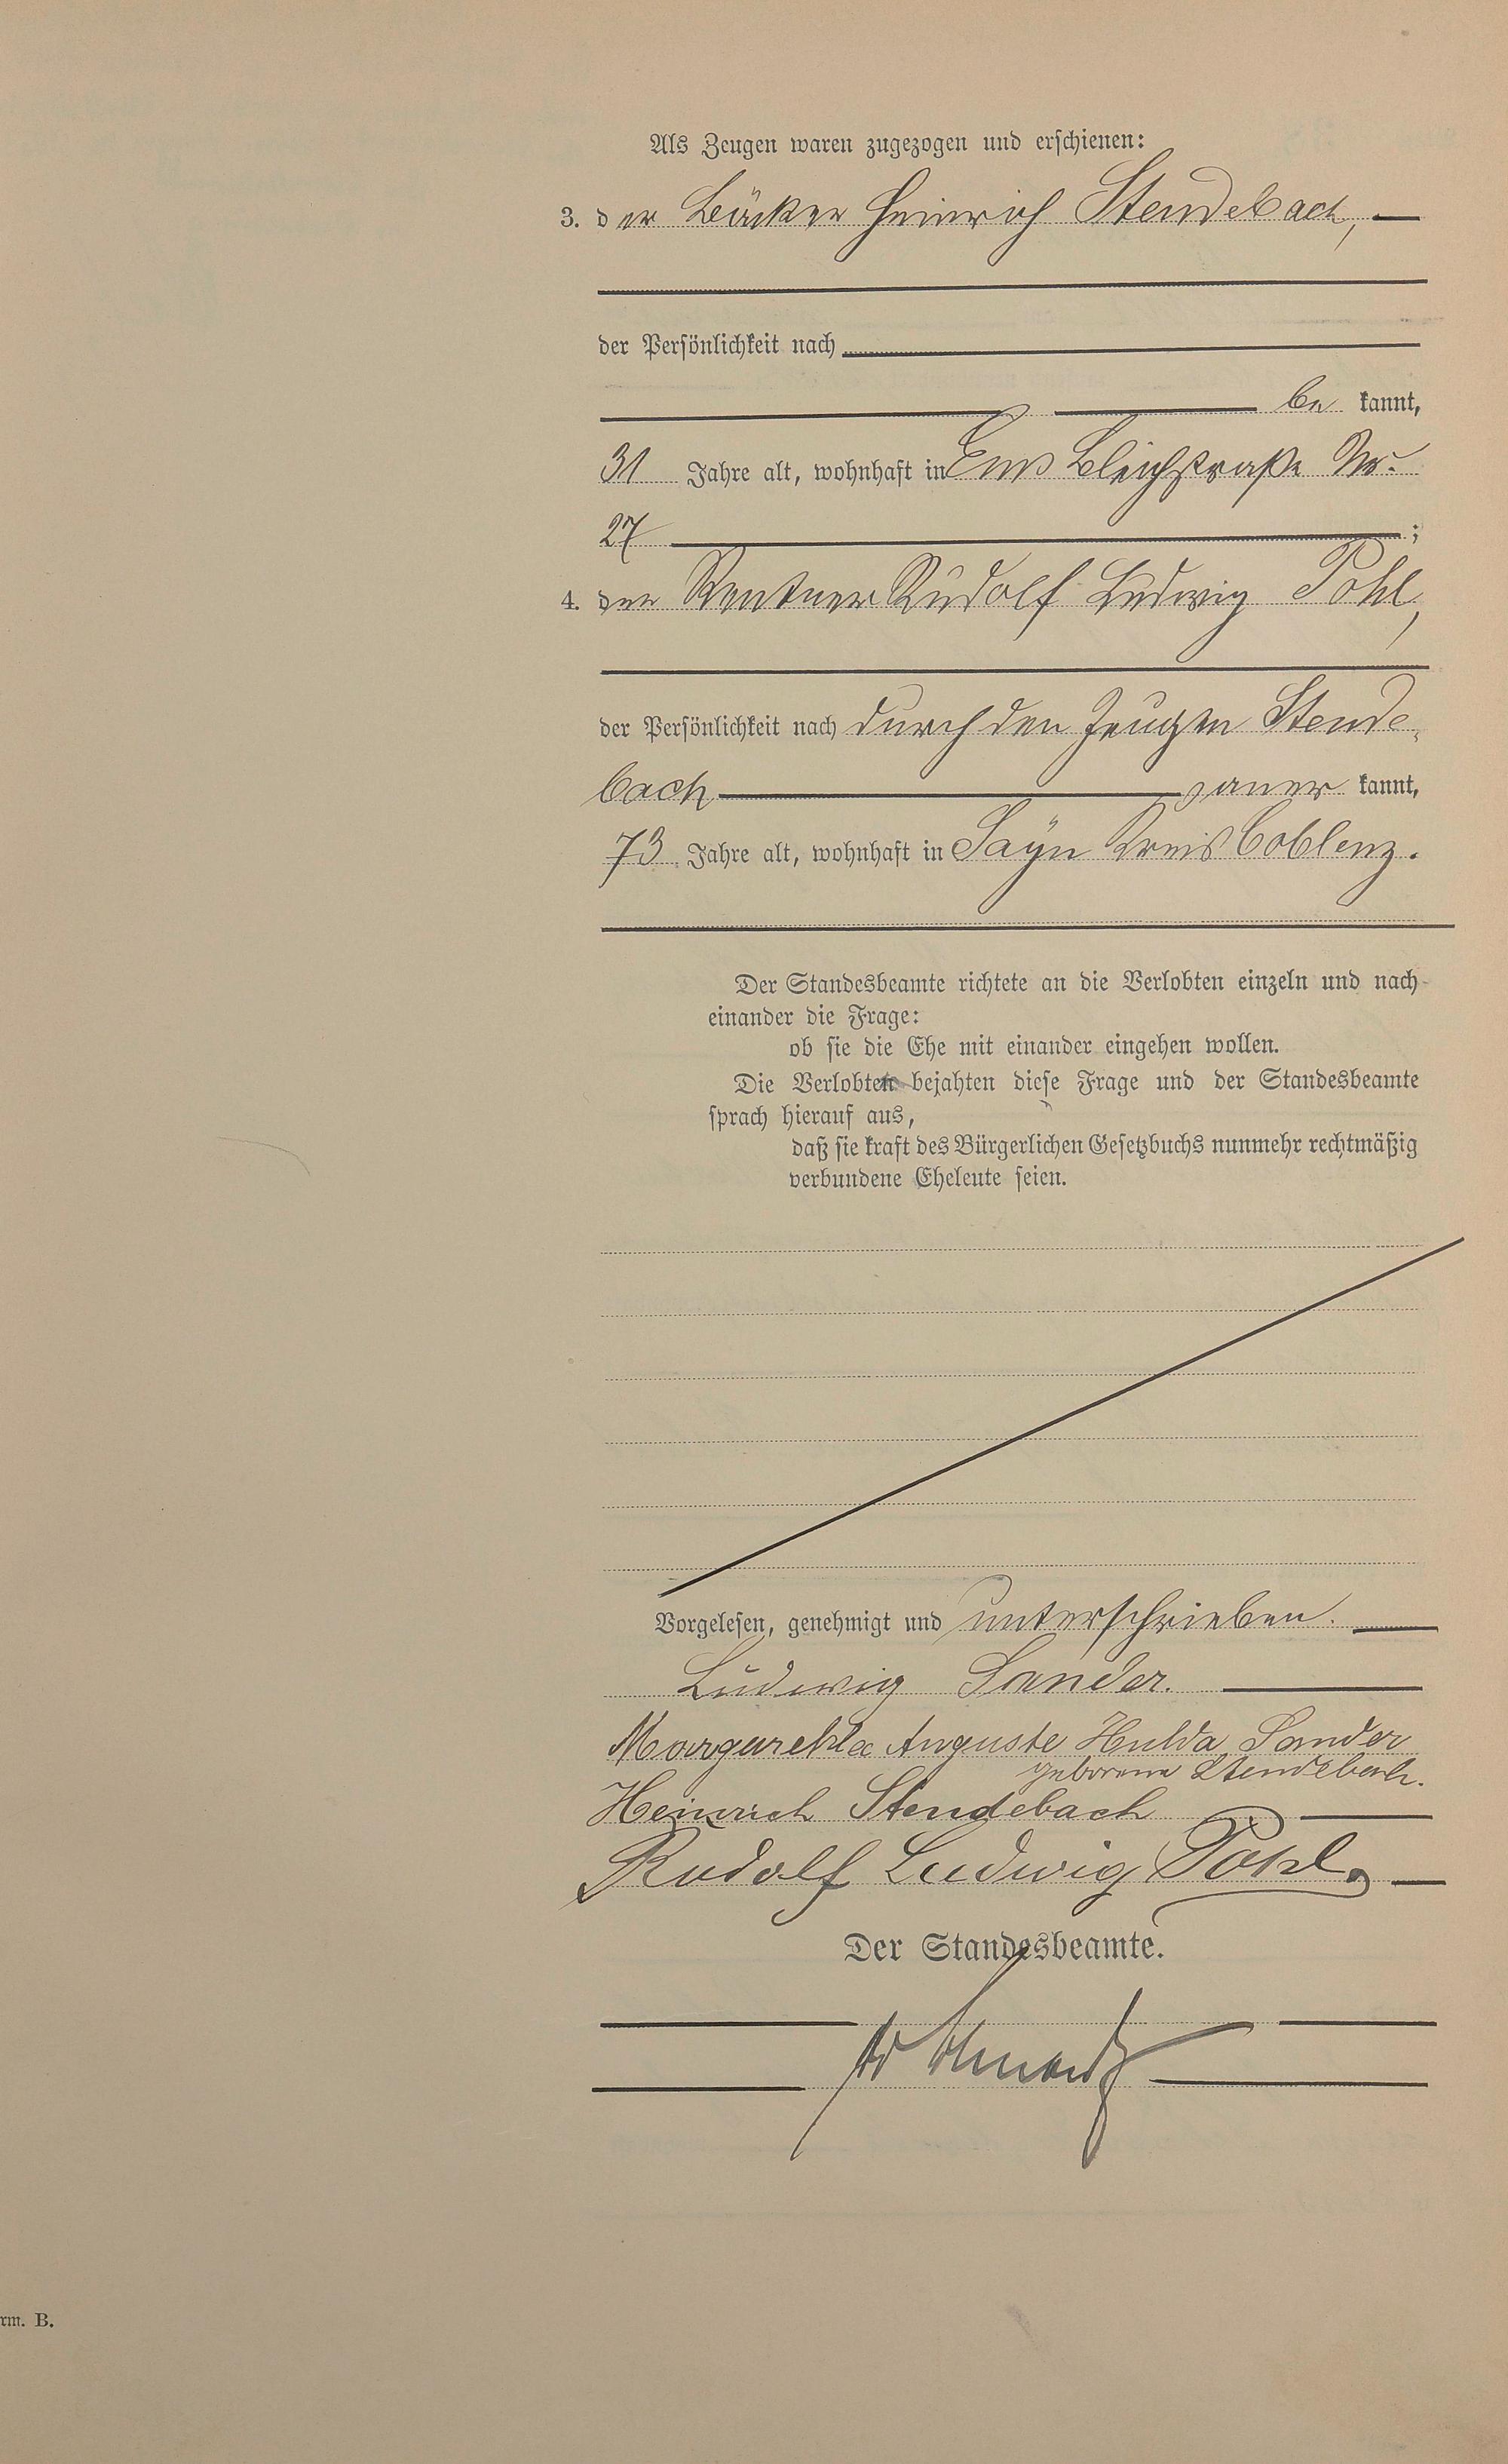 Als Zeugen waren zugezogen und erschienen:
3. der Bäcker Heinrich Stendebach,
der Persönlichkeit nach
be kannt,
31 Jahre alt, wohnhaft in Ems Bleichstraße Nr.
27 ;
4. der Rentner Rudolf Ludwig Pohl,
der Persönlichkeit nach durch den Zeugen Stende-
bach aner kannt,
73 Jahre alt, wohnhaft in Sayn Kreis Coblenz.
Der Standesbeamte richtete an die Verlobten einzeln und nach-
einander die Frage:
ob sie die Ehe mit einander eingehen wollen.
Die Verlobten bejahten diese Frage und der Standesbeamte
sprach hierauf aus,
daß sie kraft des Bürgerlichen Gesetzbuchs nunmehr rechtmäßig
verbundene Eheleute seien.
Vorgelesen, genehmigt und unterschrieben.
Ludwig Sander.
Margarethe Auguste Hulda Sander
geborene Stendebach.
Heinrich Stendebach
Rudolf Ludwig Pohl.
Der Standesbeamte.
rm. B.